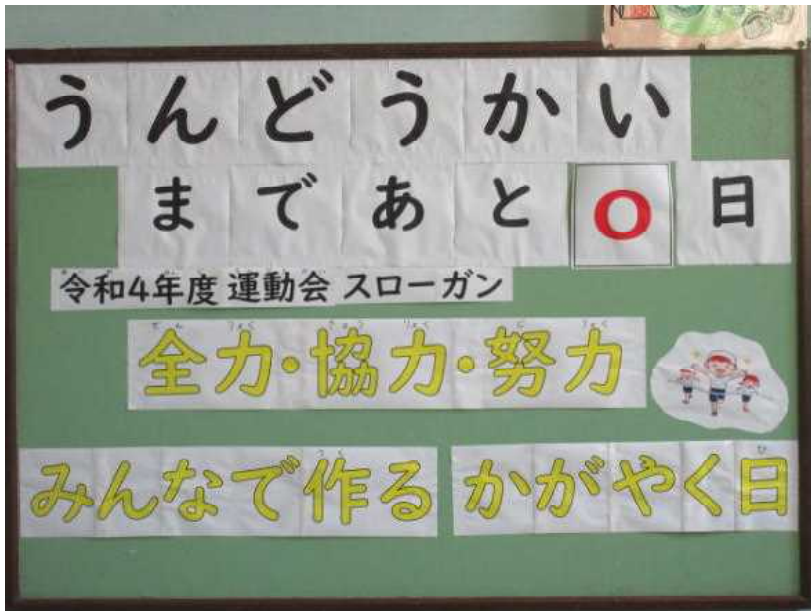 うんどうかい
まであと0日
令和4年度 運動会 スローガン
全力・協力・努力
みんなで作る かがやく日